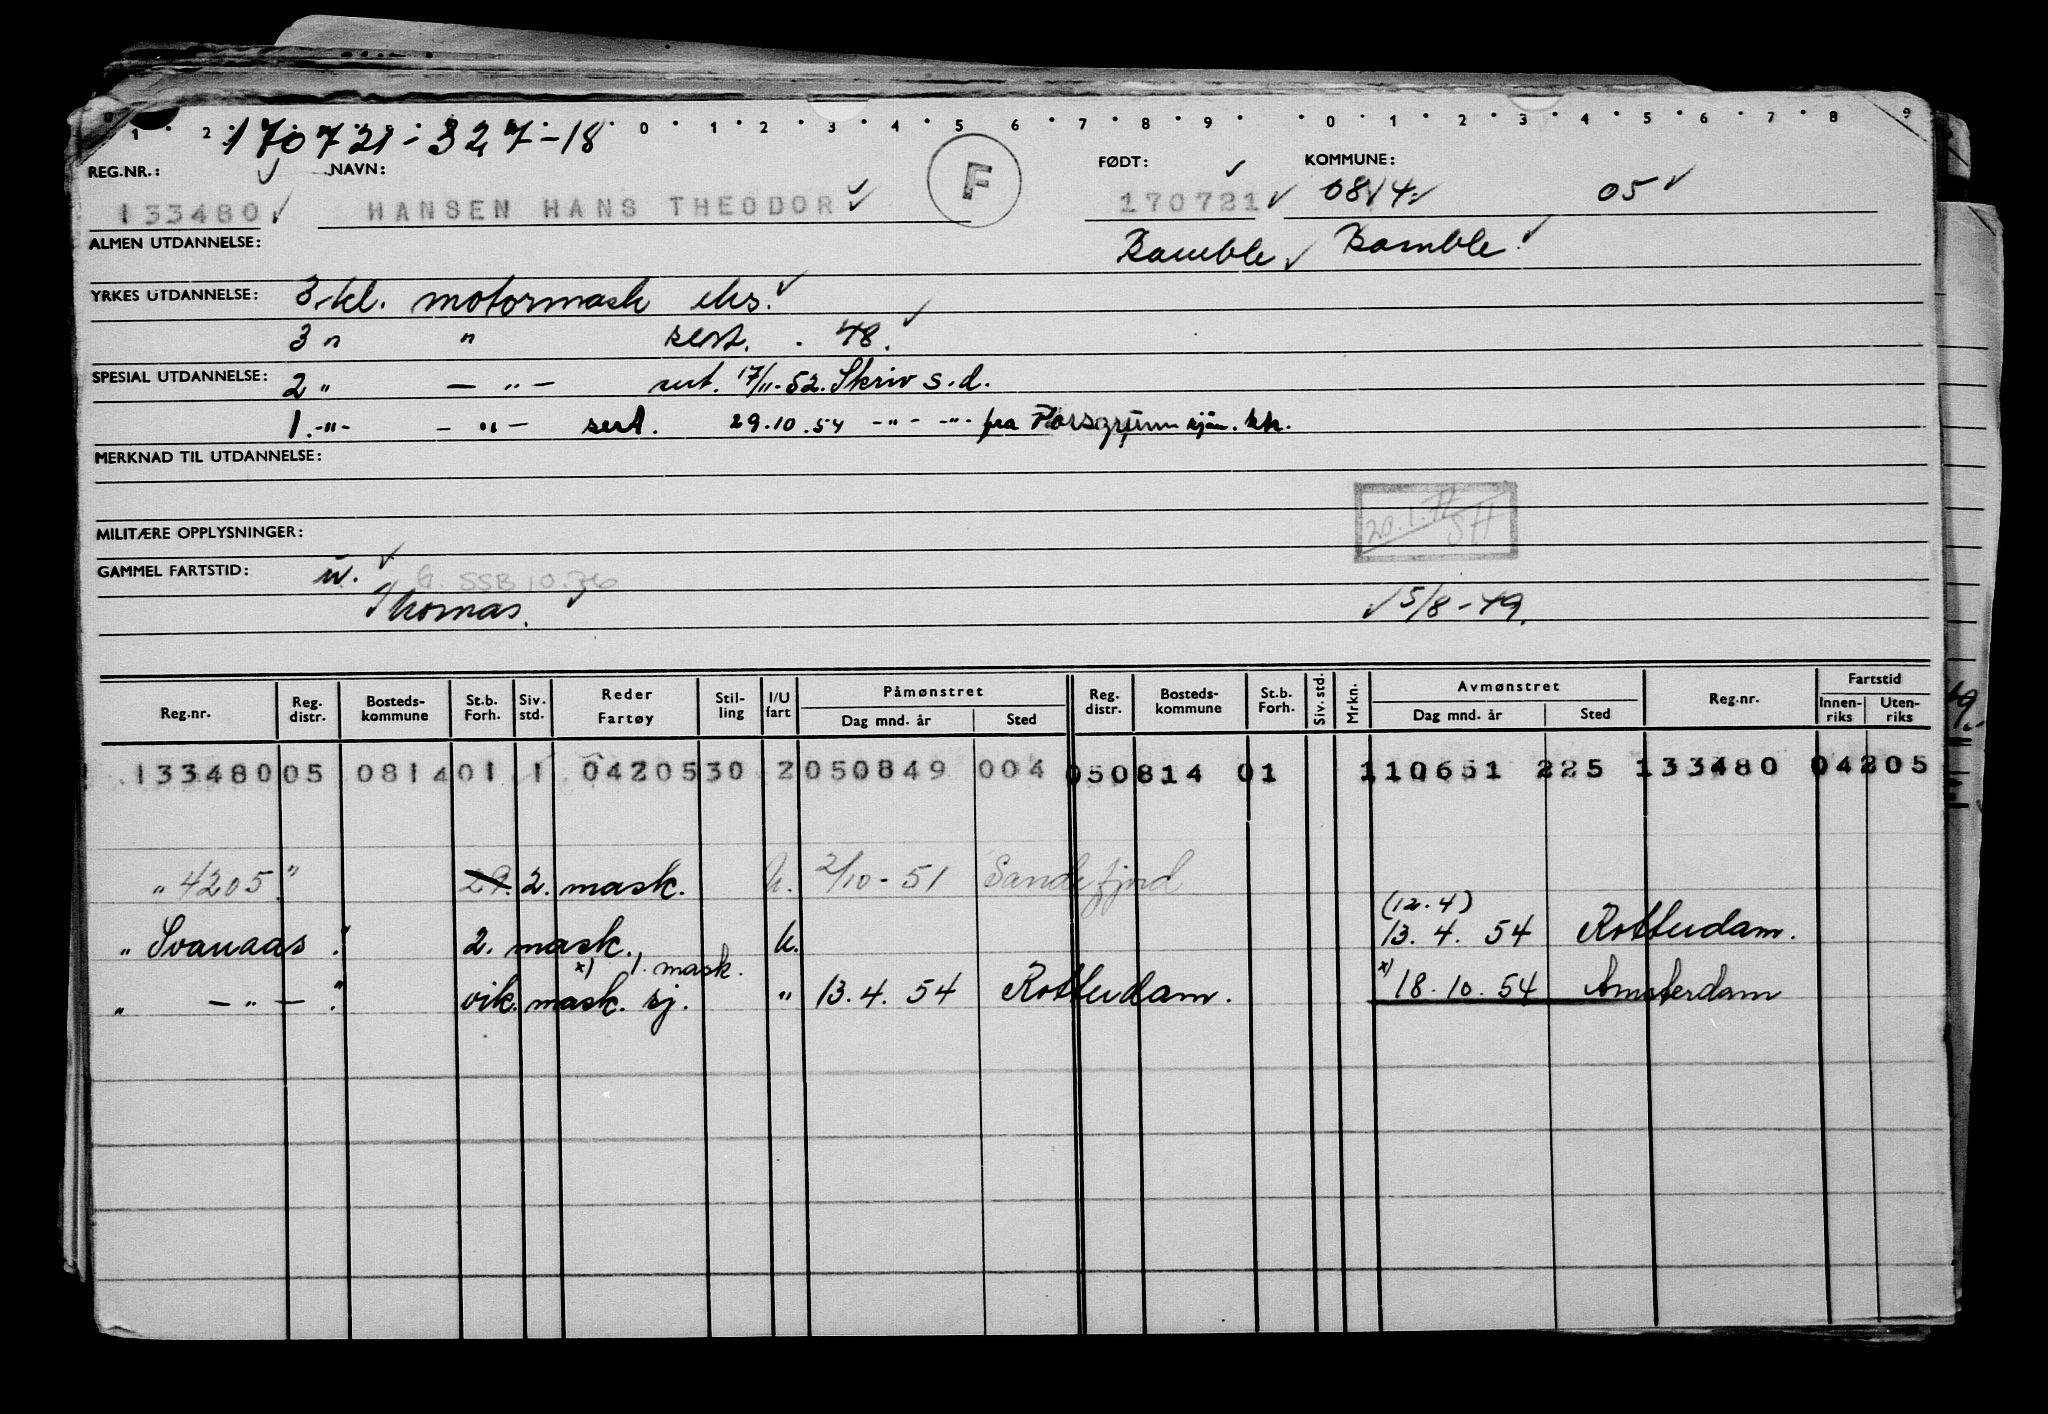 0 1 2 3 4 5 6 7 8 9 0 1 2 3 4 5 6 7 8 9 0 1 2 3 4 5 6 7 8 9
170721-327-18
REG.NR.: NAVN: F FØDT: KOMMUNE:
133480 HANSEN HANS THEODOR 170721 0814 05
ALMEN UTDANNELSE: Bamble Bamble
YRKES UTDANNELSE: 3. kl. motormask eks.
3 " " sert. . 48.
SPESIAL UTDANNELSE: 2 " — " — sert. 17/11-52. Skriv s.d.
1. -"- - " - sert. 29.10.54 -"- -"- fra Porsgrunn sjøm. ktr.
MERKNAD TIL UTDANNELSE:
20.1.77 SH
MILITÆRE OPPLYSNINGER:
GAMMEL FARTSTID: u. SSB 10.76
Thomas. 5/8-49.
Reg.nr. Reg. distr. Bosteds-kommune St.b. Forh. Siv. std. Reder Fartøy Stil-ling I/U fart Påmønstret Dag mnd. år Sted Reg. distr. Bosteds-kommune St.b. Forh. Siv. std. Mrkn. Avmønstret Dag mnd. år Sted Reg.nr. Fartstid Innen-riks Uten-riks
133480 05 0814 01 1 04205 30 2 050849 004 05 0814 01 110651 225 133480 04205
" 4205 " 29. 2. mask. U. 2/10-51 Sandefjord
(12.4)
" Svanaas " 2. mask. U. 13.4.54 Rotterdam.
x) 1. mask.
" — " — " vik. mask. sj. " 13.4.54 Rotterdam. x) 18.10.54 Amsterdam
49.